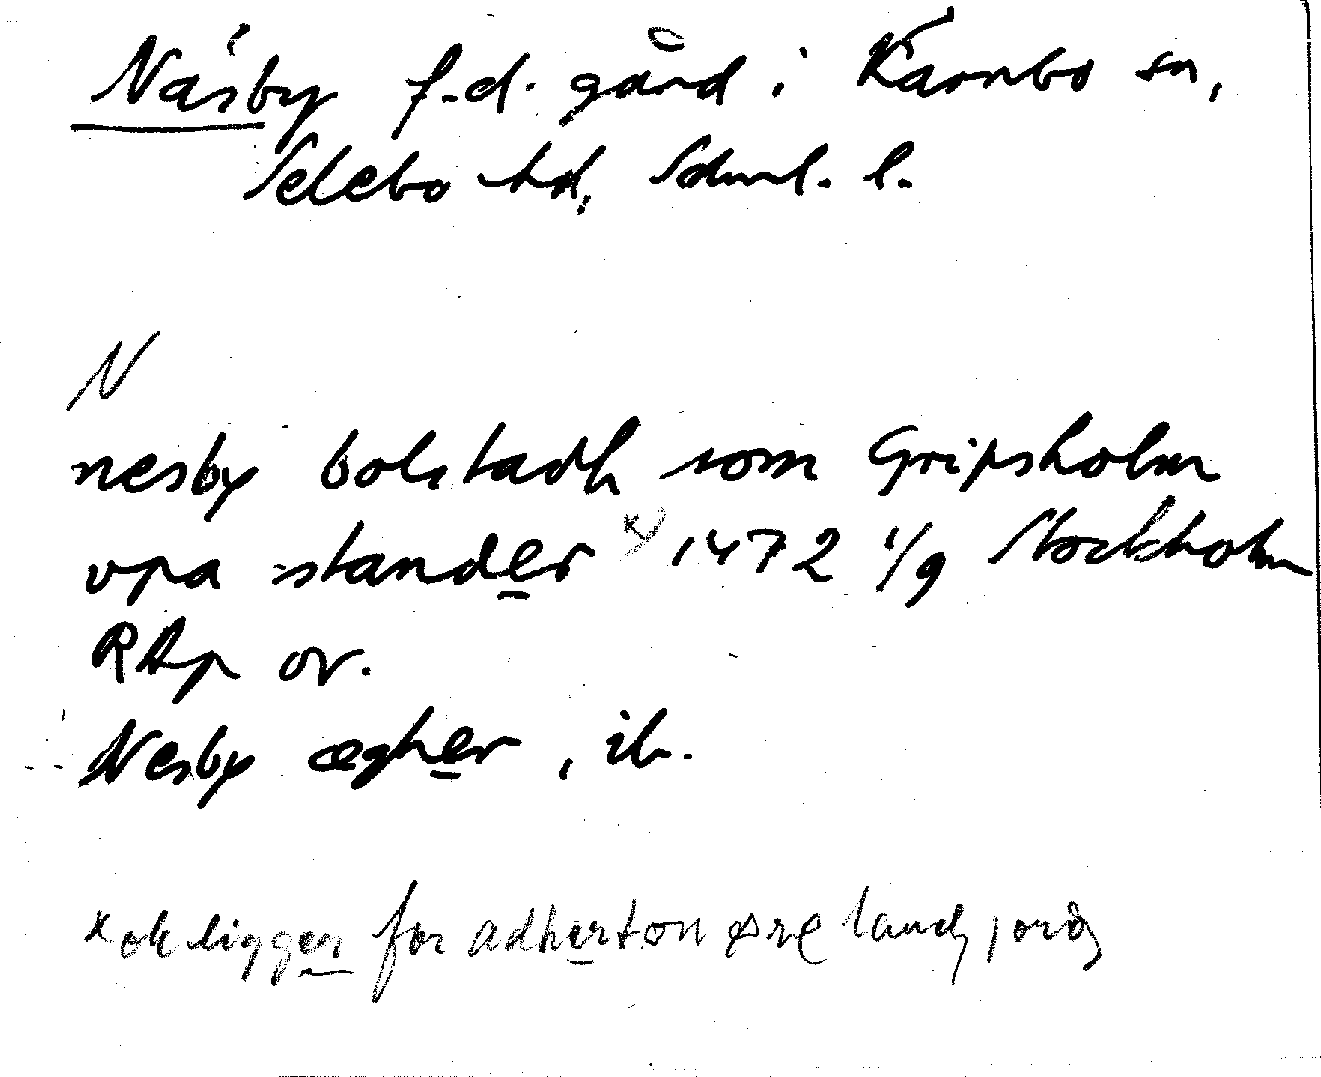 Näsby f.d. gård i Kärnbo sn,
Selebo hd, Södml. l.
N
nesby bolstadh som Gripsholm
vpa stander x) 1472 1/9 Stockholm
RAp or.
Nesby ægher, ib.
x ok ligger for adherton øre landz jordz